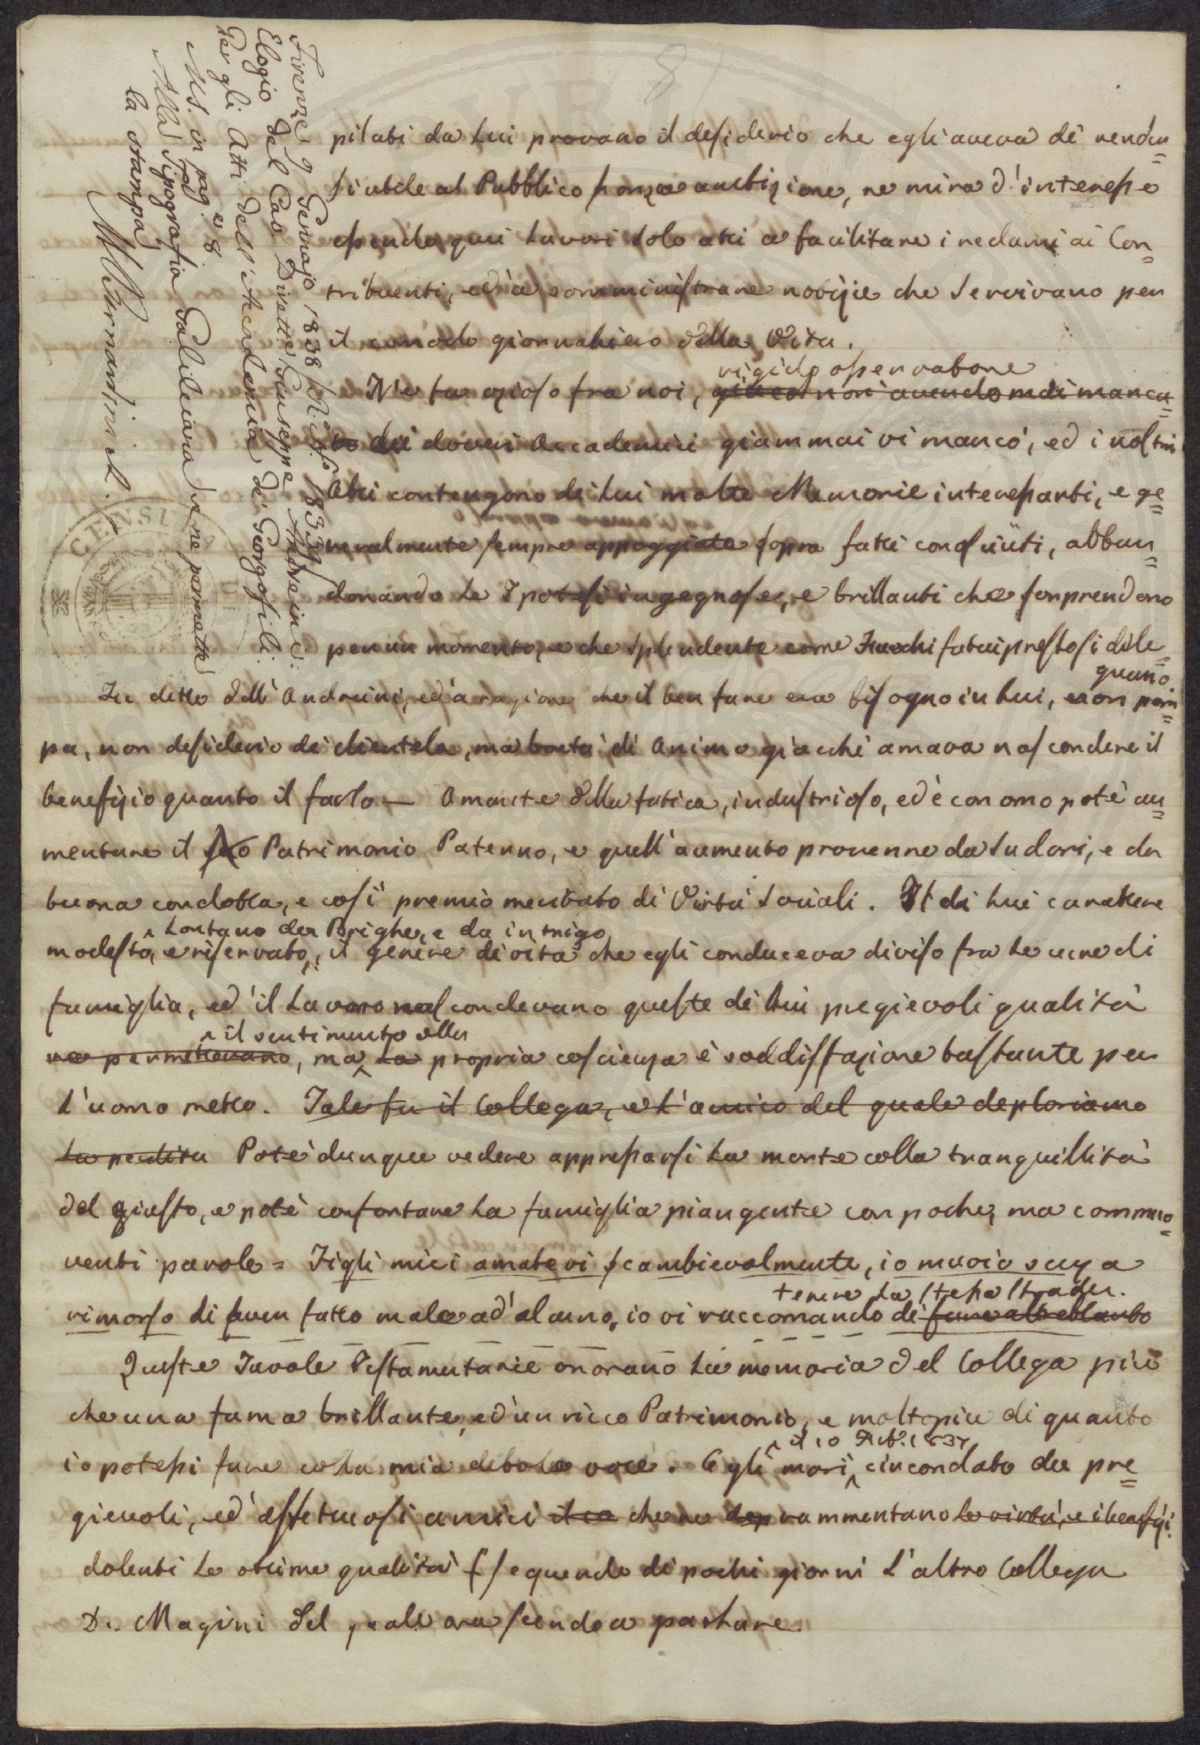 8
Firenze 9 Gennajo 1838
Elogio del Cav. Dirett. Giuseppe Andreini
Per gli Atti dell'Accademia dei Georgofili
MS. in pag. 8
Alla Tipografia Galileiana se ne permette
la stampa
M. Bernardini C.
CENSU
pilati da Lui provano il desiderio che egli aveva di render
si utile al Pubblico senza ambizione, ne mira d'interesse
essendo quei Lavori solo atti a facilitare i reclami ai Con
tribuenti, ed a somministrare notizie che servivano per
il comodo giornaliero della Vita.
rigido osservatore
Ne fu ozioso fra noi, giacche non avendo mai manca
to dei doveri Accademici giammai vi mancò, ed i nostri
Atti contengono di Lui molte Memorie interessanti, e ge
neralmente sempre appoggiate sopra fatti conosciuti, abban
donando le Ipotesi ingegnose, e brillanti che sorprendono
per un momento, e che splendente come Fuochi fatui presto si dile
guano.
Fu detto dell'Andreini, ed a ragione che il ben fare era bisogno in Lui, non pom
pa, non desiderio di clientela, ma bontà di Animo giacchè amava nascondere il
benefizio quanto il farlo — Amante della fatica, industrioso, ed economo potè au
mentare il suo Patrimonio Paterno, e quell'aumento provenne da sudori, e da
buona condotta, e così premio meritato di Virtù Sociali. Il di Lui carattere
Lontano da Brighe, e da intrigo
modesto, e riservato, il genere di vita che egli conduceva diviso fra le cure di
famiglia, ed il Lavoro nascondevano queste di Lui pregievoli qualità
il sentimento della
permettevano, ma La propria coscienza è soddisfazione bastante per
l'uomo retto. Tale fu il Collega, e l'amico del quale deploriamo
La perdita Potè dunque vedere appressarsi La morte colla tranquillità
del giusto, e potè confortare La famiglia piangente con poche, ma commo
venti parole = Figli miei amatevi scambievolmente, io muojo senza
tenere La stessa strada.
rimorso di aver fatto male ad alcuno, io vi raccomando di fare altrettanto
Queste Tavole Testamentarie onorano La memoria del Collega più
che una fama brillante, ed un ricco Patrimonio, e molto più di quanto
il 10 1837
io potessi fare colla mia debole voce. Egli morì circondato da pre
gievoli, ed affettuosi amici che ne rammentano le virtù, e i benefizj
dolenti Le ottime qualità seguendo di pochi giorni L'altro Collega
Dr. Magini del quale ora scendo a parlare.